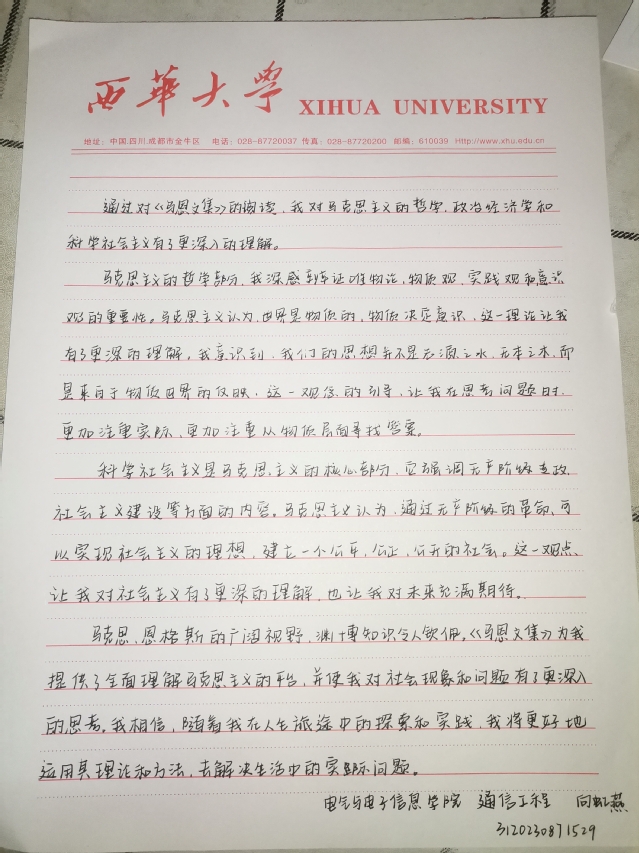 西華大學 XIHUA UNIVERSITY
地址：中国.四川.成都市金牛区 电话：028-87720037 传真：028-87720200 邮编：610039 Http://www.xhu.edu.cn
通过对《马恩文集》的阅读，我对马克思主义的哲学，政治经济学和
科学社会主义有了更深入的理解。
马克思主义的哲学部分，我深感到辩证唯物论，物质观，实践观和意识
观的重要性。马克思主义认为，世界是物质的，物质决定意识，这一理论让我
有了更深的理解，我意识到，我们的思想并不是无源之水，无本之木，而
是来自于物质世界的反映，这一观念的引导，让我在思考问题时，
更加注重实际，更加注重从物质层面寻找答案。
科学社会主义是马克思主义的核心部分，它强调无产阶级专政，
社会主义建设等方面的内容。马克思主义认为，通过无产阶级的革命，可
以实现社会主义的理想，建立一个公平，公正，公开的社会。这一观点、
让我对社会主义有了更深的理解，也让我对未来充满期待。
马克思、恩格斯的广阔视野，渊博知识令人钦佩。《马恩文集》为我
提供了全面理解马克思主义的平台，并使我对社会现象和问题有了更深入
的思考。我相信，随着我在人生旅途中的探索和实践，我将更好地
运用其理论和方法，去解决生活中的实际问题。
电气与电子信息学院 通信工程 向虹燕
3120230871529